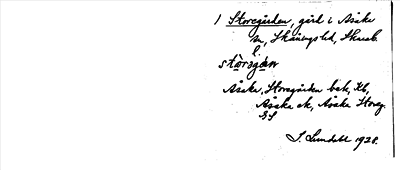 1 Storegården, gård i Asåke
sn, Skånings hd, Skarab.
l.
stòrəgàn
Asåke, Storegården bek, Kb,
Asåke ek, Asåke Storeg.
GS
I. Lundahl 1928.